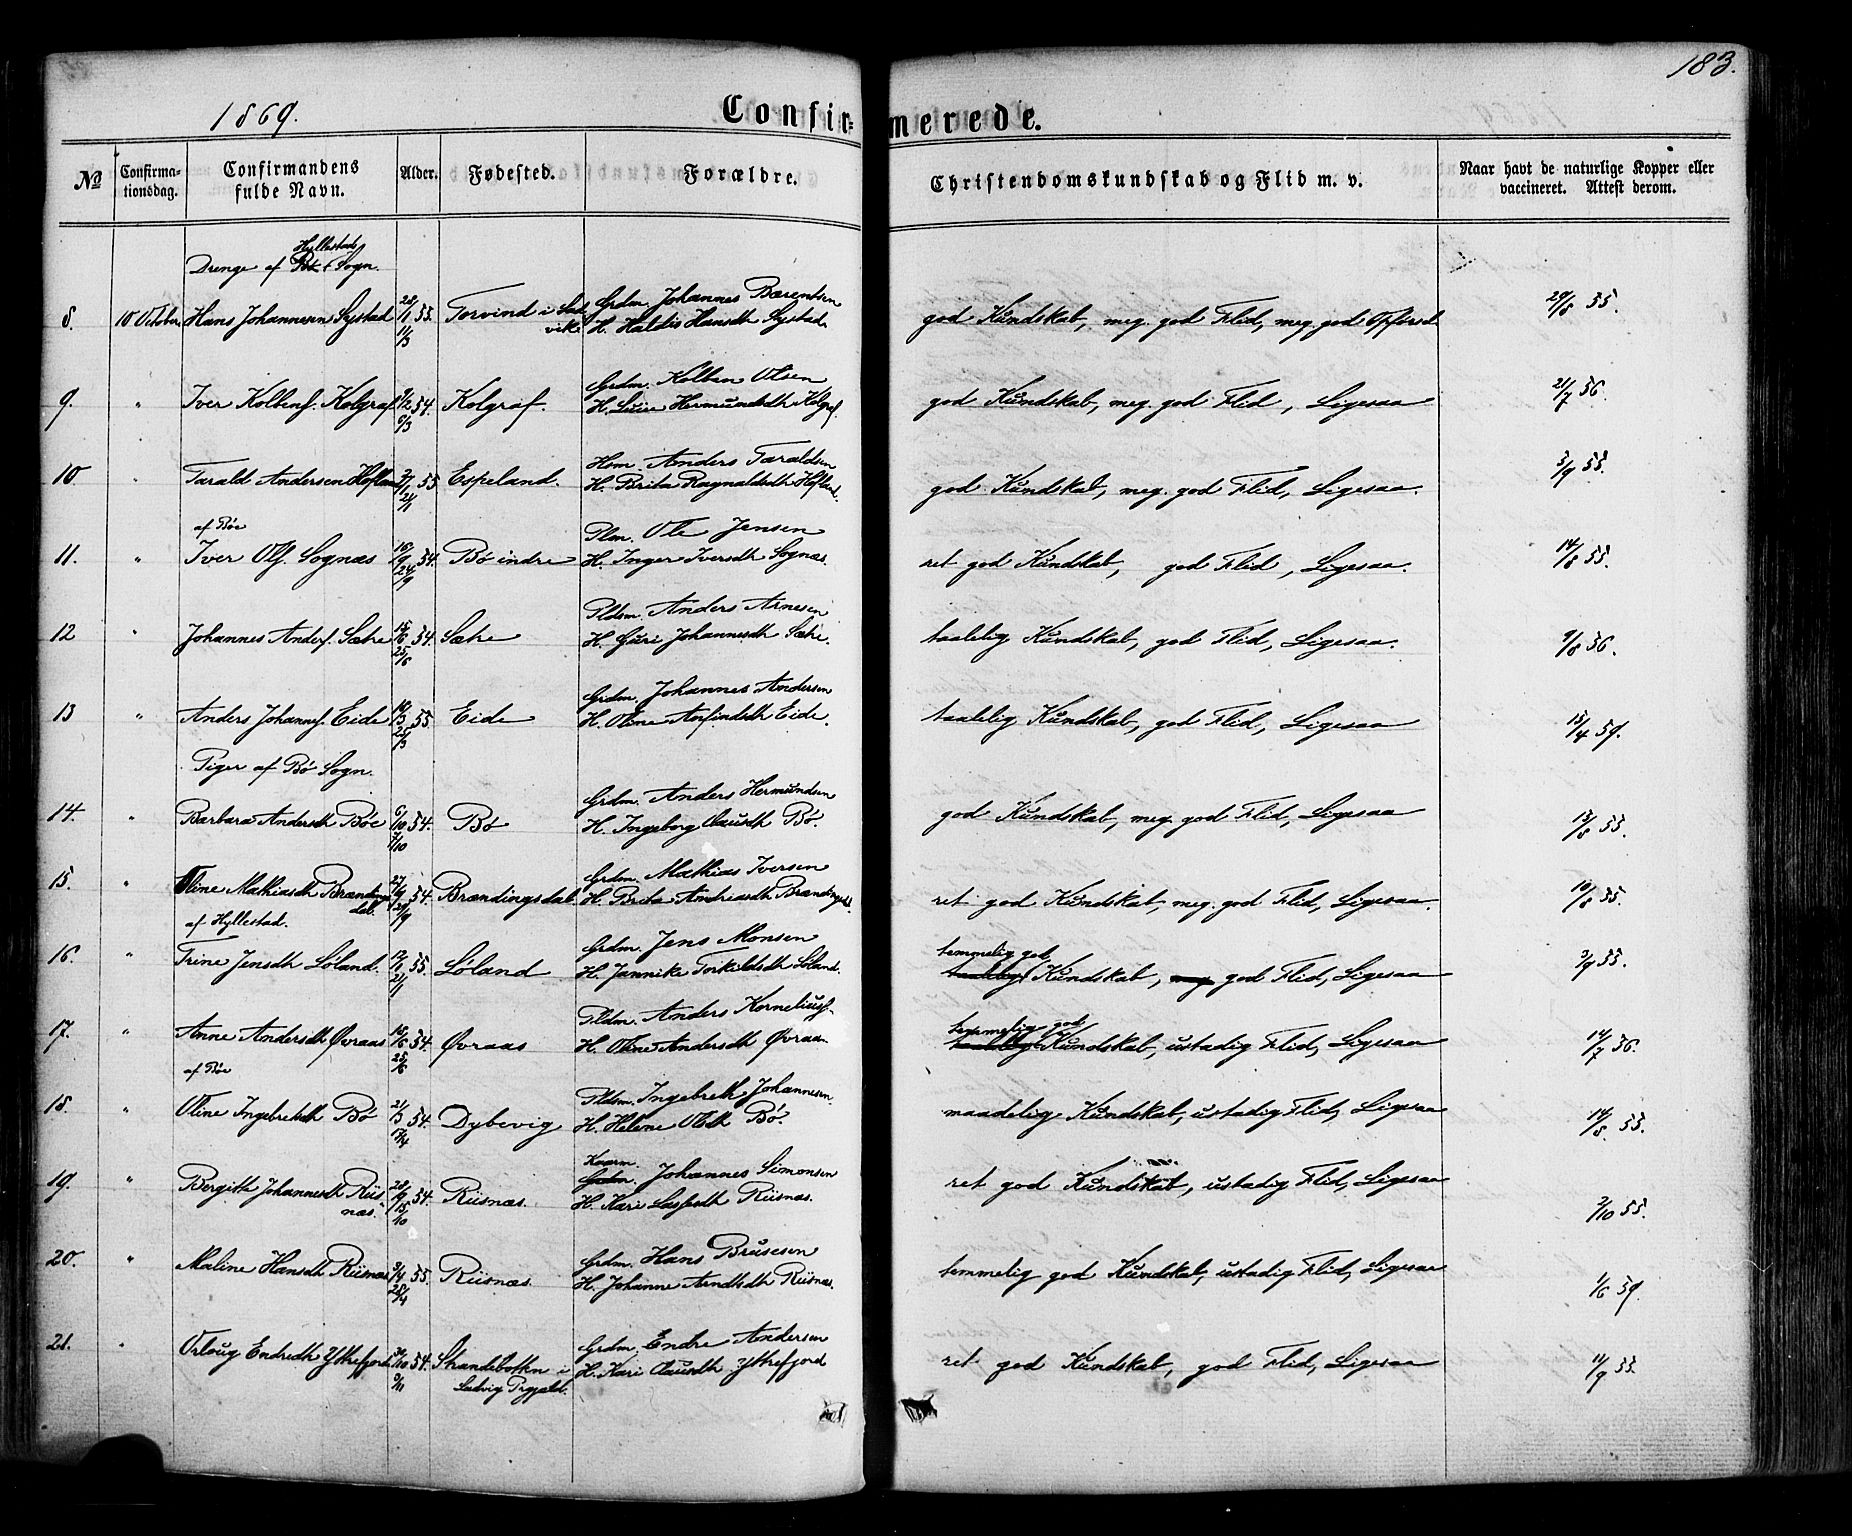 183.
1869.
Confirmerede.
No
Confirmationsdag.
Confirmandens fulde Navn.
Alder.
Fødested.
Forældre.
Christendomskundskab og Flid m. v.
Naar havt de naturlige Kopper eller vaccineret. Attest derom.
Hyllestads
Drenge af Bø Sogn.
8. 10 October Hans Johannesen Systad 55. Torvind i vik Grdm. Johannes Bærentsen
H. Haldis Hansdtr Systad god Kundskab, meg. god Flid, meg. god Opførsel 29/8 55.
9. " Iver Kolbens. Kolgraf 54. Kolgraf. Grdm. Kolben Olsen
H. Hermundsdtr Kolgraf. god Kundskab, meg. god Flid, Ligesaa 21/7 56.
10 " Tarald Andersen Hofland 55 Espeland. Hsm. Anders Taraldsen
H. Brita Ragnaldsdtr Hofland. god Kundskab, meg. god Flid, Ligesaa. 3/9 55.
af Bøe
11. " Iver Ols. Sognæs 54. Bø indre Plm. Ole Jensen
H. Inger Iversdtr Sognæs. ret god Kundskab, god Flid, Ligesaa. 14/8 55.
12 " Johannes Anders. Sætre 54. Sætre Pldsm. Anders Arnesen
H. Guri Johannesdtr Sætre. taalelig Kundskab, god Flid, Ligesaa. 9/8 56.
13 " Anders Johannes. Eide 55. Eide Grdm. Johannes Andersen
H. Oline Anfindsdtr Eide. taalelig Kundskab, god Flid, Ligesaa 15/4 59.
Piger af Bø Sogn.
14. " Barbara Andersdtr Bøe 6/10 54. 7/10 Bø Grdm. Anders Hermundsen
H. Ingeborg Clausdtr Bø. god Kundskab, meg. god Flid, Ligesaa 13/8 55.
15. " Oline Mathiasdtr Brændingsdal. 27/9 54. 29/9 Brændingsdal. Grdm. Mathias Iversen
H. Brita Andreasdtr Brændingsdal. ret god Kundskab, meg. god Flid, Ligesaa. 10/8 55.
af Hyllestad.
16. " Trine Jensdtr Løland. 12/1 55. 21/1 Løland Grdm. Jens Monsen
H. Jannike Torkildsdtr Løland. temmelig god taalelig Kundskab, meg god Flid, Ligesaa 3/9 55.
17. " Anne Andersdtr Øvraas 16/6 54. 25/6 Øvraas Pldsm. Anders Kornelius.
H. Oline Andersdtr Øvraas. temmelig god taalelig Kundskab, ustadig Flid, Ligesaa 14/7 56.
af Bøe
18. " Oline Ingebretsdtr Bø 21/3 54. 17/4 Dybevig Pldsm. Ingebreth Johannesen.
H. Helene Olsdtr Bø. maadelig Kundskab, ustadig Flid, Ligesaa 14/8. 55.
19. " Bergitte Johannesdtr Riisnæs. 28/9 54. 15/10 Riisnæs. Kaarm. Grdm. Johannes Simonsen
H. Kari Lassesdtr Riisnæs. ret god Kundskab, ustadig Flid, Ligesaa 2/10 55.
20. " Maline Hansdtr Riisnæs 9/4 55. 25/4 Riisnæs. Grdm. Hans Brusesen
H. Johanne Arndtsdtr Riisnæs. temmelig god Kundskab, ustadig Flid, Ligesaa 1/6 59.
21. " Orloug Endredtr Yttrefjord 30/10 54. Strandebottn i Ladvig Prgjæld. Grdm. Endre Andersen
H. Kari Clausdtr Yttrefjord ret god Kundskab, god Flid, Ligesaa 11/9 55